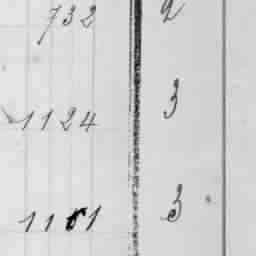 732 2
1124 3
1161 3